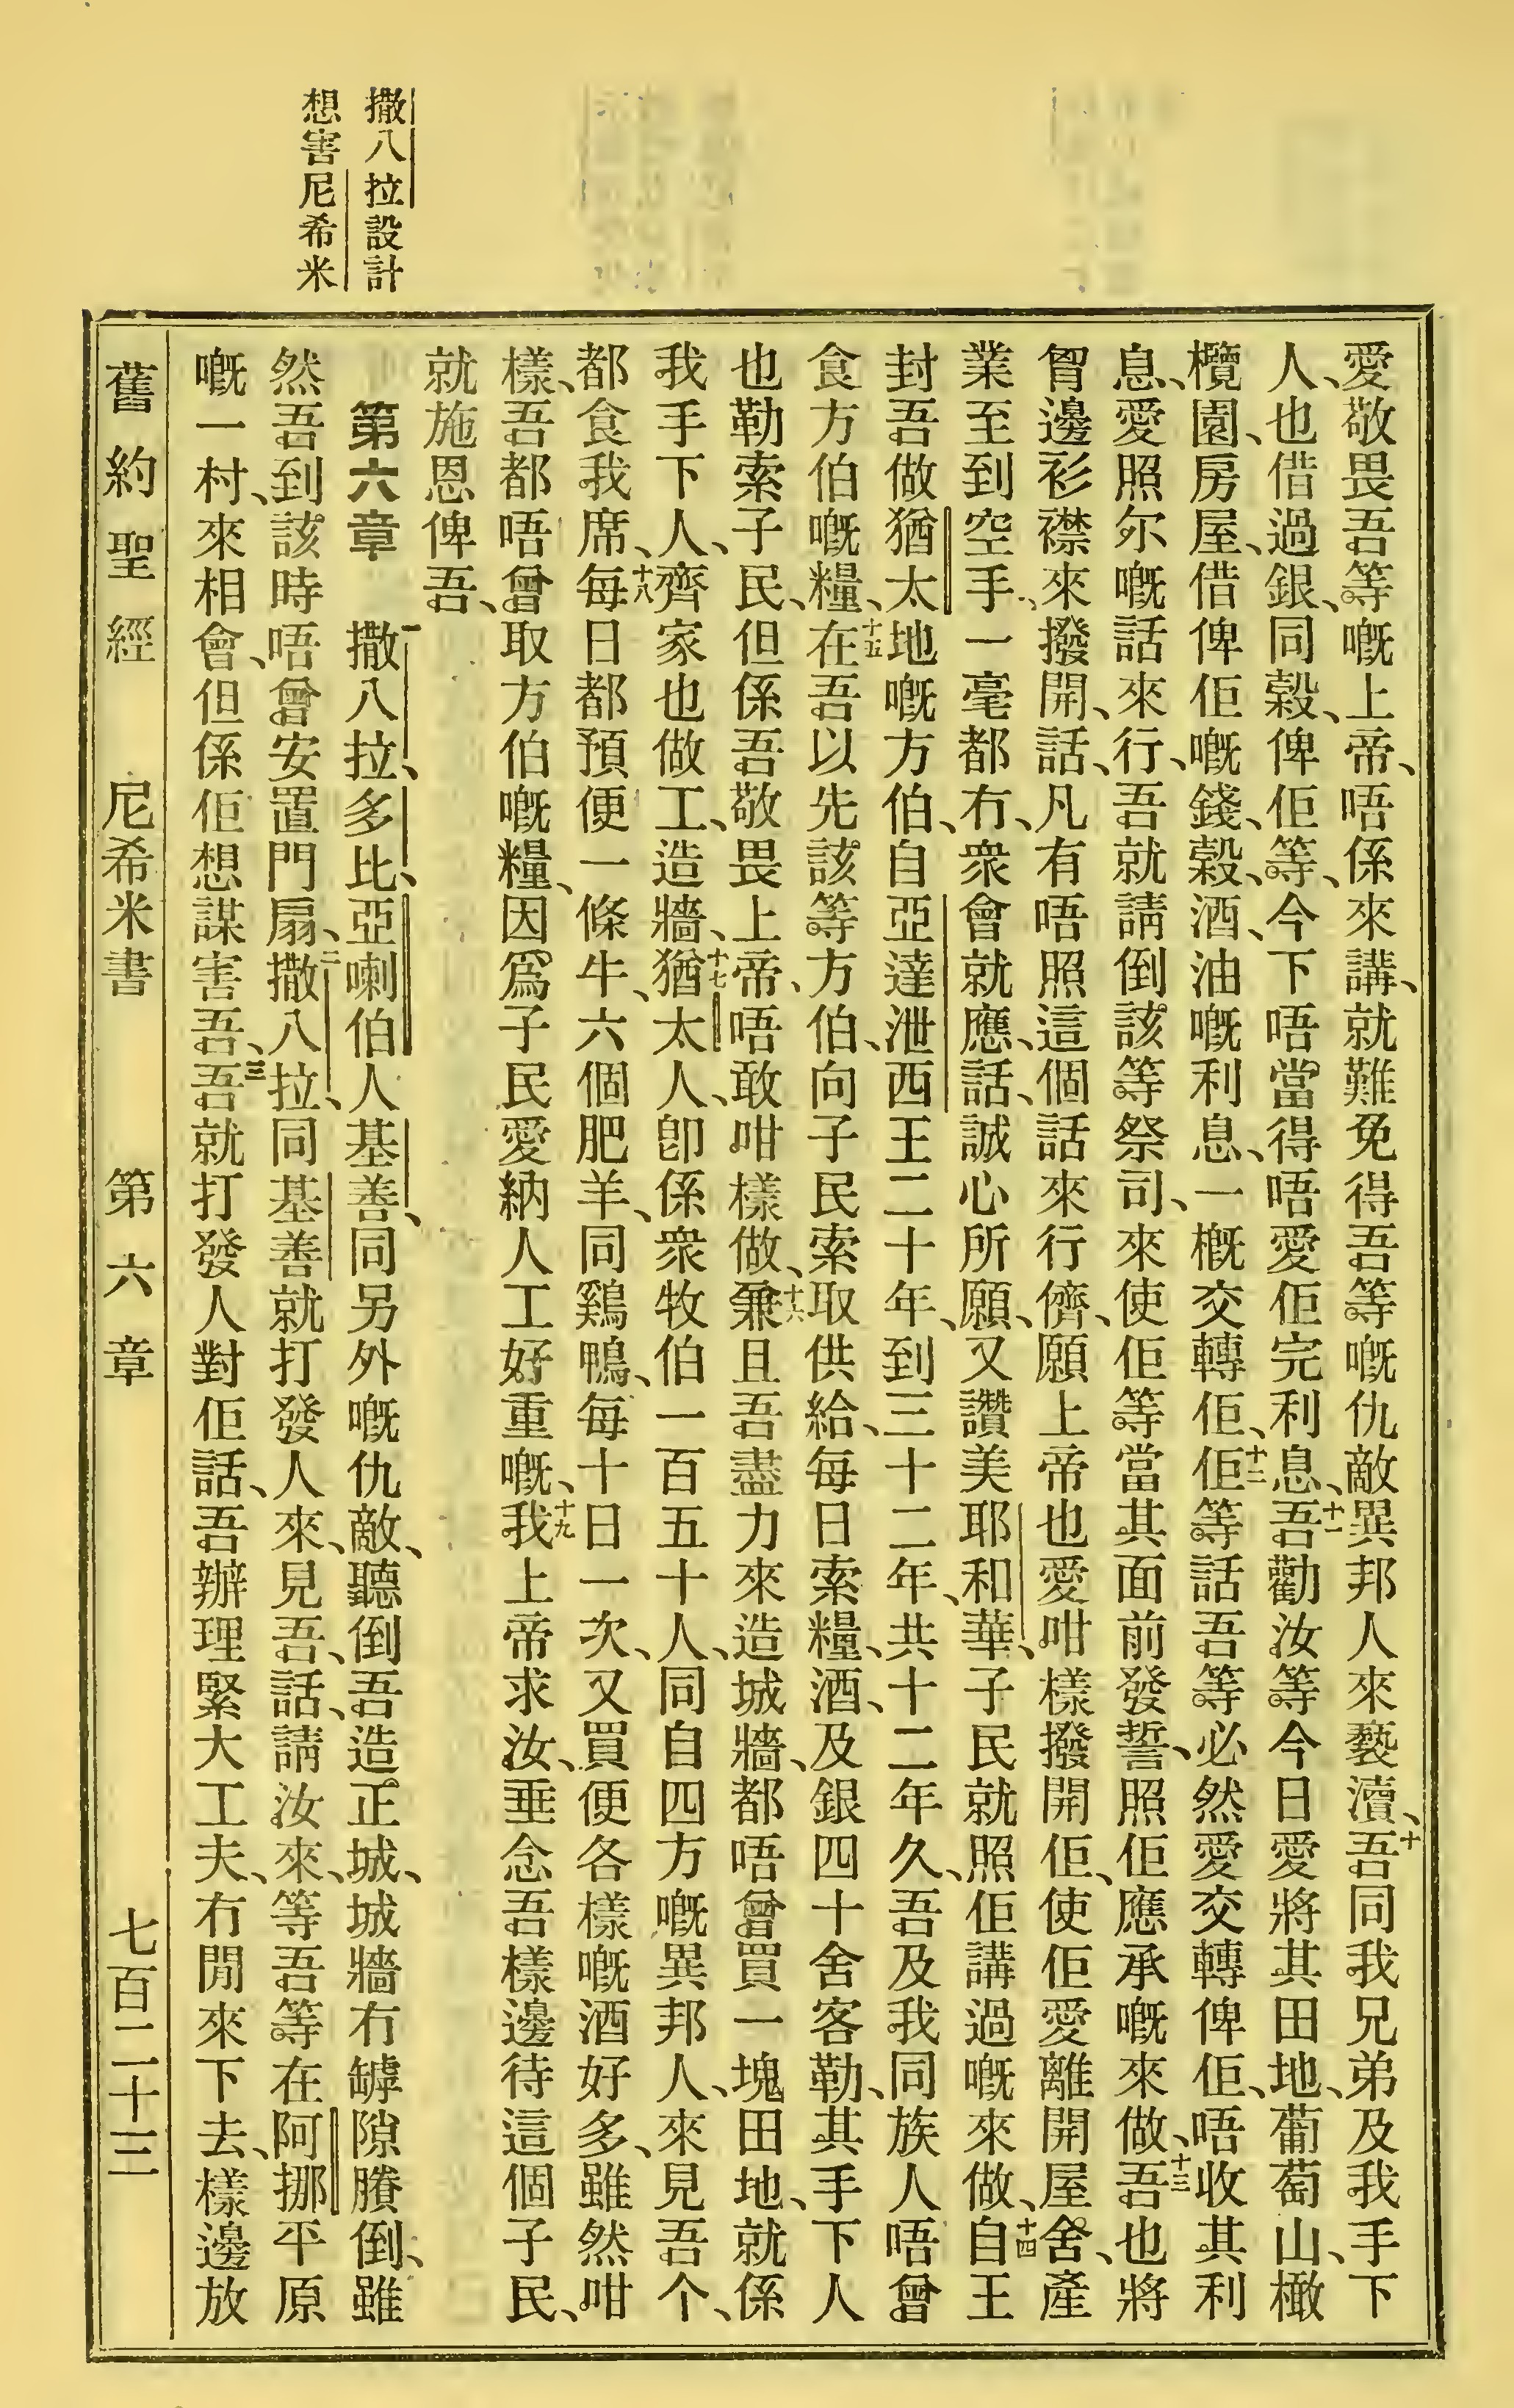 撒八拉設計
想害尼希米
愛敬畏吾等嘅上帝、唔係來講、就難免得吾等嘅仇敵異邦人來褻瀆、十吾同我兄弟及我手下
人、也借過銀、同穀、俾佢等、今下唔當得唔愛佢完利息、十一吾勸汝等今日愛將其田地、葡萄山、橄
欖園、房屋、借俾佢嘅錢、穀、酒、油嘅利息、一概交轉佢、十二佢等話吾等必然愛交轉俾佢、唔收其利
息、愛照尔嘅話來行、吾就請倒該等祭司、來使佢等當其面前發誓、照佢應承嘅來做、十三吾也將
胷邊衫襟來撥開、話、凡有唔照這個話來行儕、願上帝也愛咁樣撥開佢、使佢愛離開屋舍、產
業至到空手、一毫都冇、衆會就應、話、誠心所願、又讚美耶和華、子民就照佢講過嘅來做、十四自王
封吾做猶太地嘅方伯、自亞達泄西王二十年、到三十二年、共十二年久、吾及我同族人唔曾
食方伯嘅糧、十五在吾以先該等方伯、向子民索取供給、每日索糧、酒、及銀四十舍客勒、其手下人
也勒索子民、但係吾敬畏上帝、唔敢咁樣做、十六兼且吾盡力來造城牆、都唔曾買一塊田地、就係
我手下人、齊家也做工、造牆、十七猶太人、卽係衆牧伯一百五十人、同自四方嘅異邦人、來見吾个、
都食我席、十八每日都預便一條牛、六個肥羊、同鷄鴨、每十日一次、又買便各樣嘅酒好多、雖然咁
樣、吾都唔曾取方伯嘅糧、因爲子民愛納人工好重嘅、十九我上帝求汝、垂念吾樣邊待這個子民、
就施恩俾吾、
第六章 一撒八拉、多比、亞喇伯人基善、同另外嘅仇敵、聽倒吾造正城、城牆冇罅隙賸倒、雖
然吾到該時唔曾安置門扇、二撒八拉、同基善就打發人來、見吾、話、請汝來、等吾等在阿挪平原
嘅一村、來相會、但係佢想謀害吾、三吾就打發人對佢話、吾辦理緊大工夫、冇閒來下去、樣邊放
舊約聖經 尼希米書 第六章 七百二十三